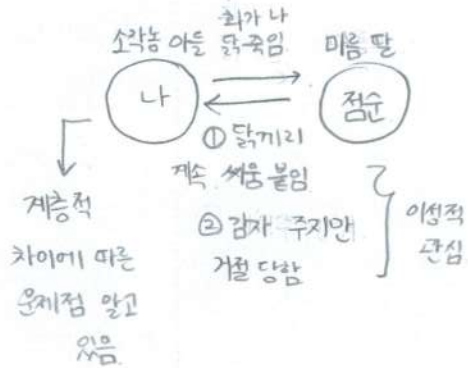 화가 나
닭 죽임
소작농 아들
마름 딸
나
점순
① 닭끼리
계속 싸움 붙임
② 감자 주지만
거절 당함
이성적
관심
계층적
차이에 따른
문제점 알고
있음